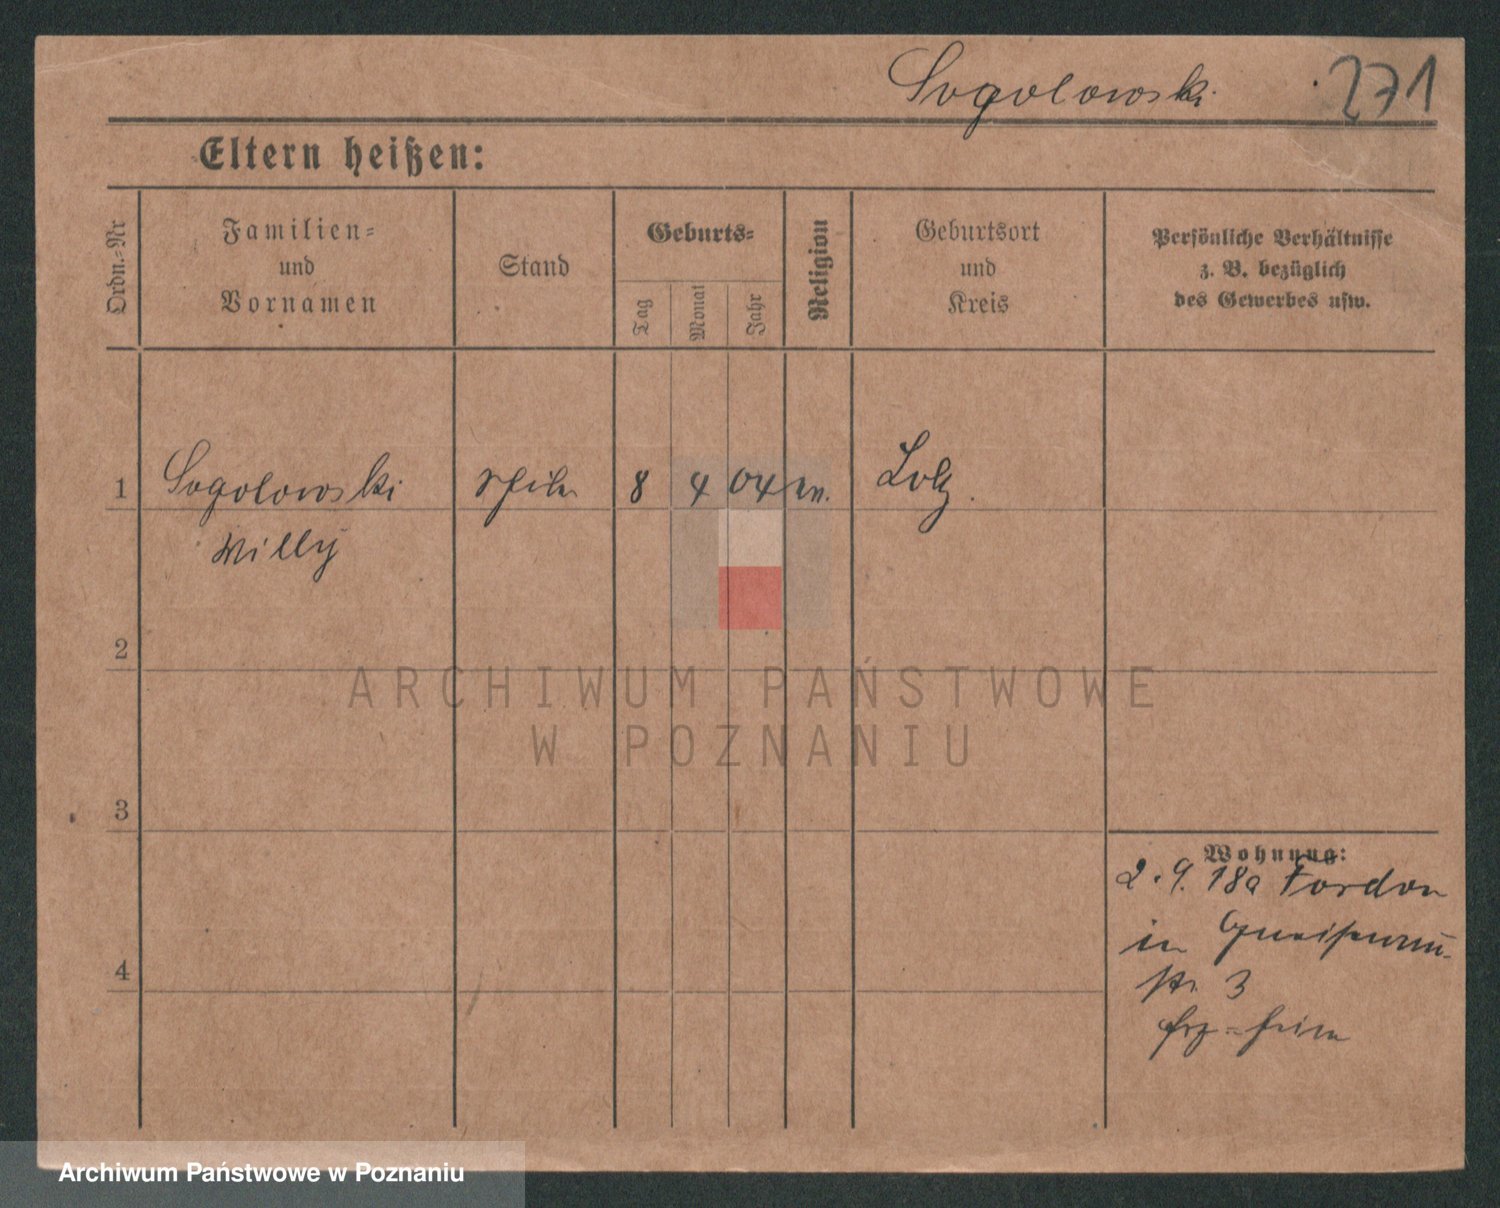 Sogolowski 271
Eltern heißen:
Ordn.-Nr
Familien-
und
Vornamen
Stand
Geburts-
Tag
Monat
Jahr
Religion
Geburtsort
und
Kreis
Persönliche Verhältnisse
z. B. bezüglich
des Gewerbes usw.
1 Sogolowski 8 4 04 ev.
Willy
2
3
4
Wohnung:
2. 9. 18 Fordon
in Gneisenau-
str. 3
Erz-heim
ARCHIWUM PAŃSTWOWE
W POZNANIU
Archiwum Państwowe w Poznaniu